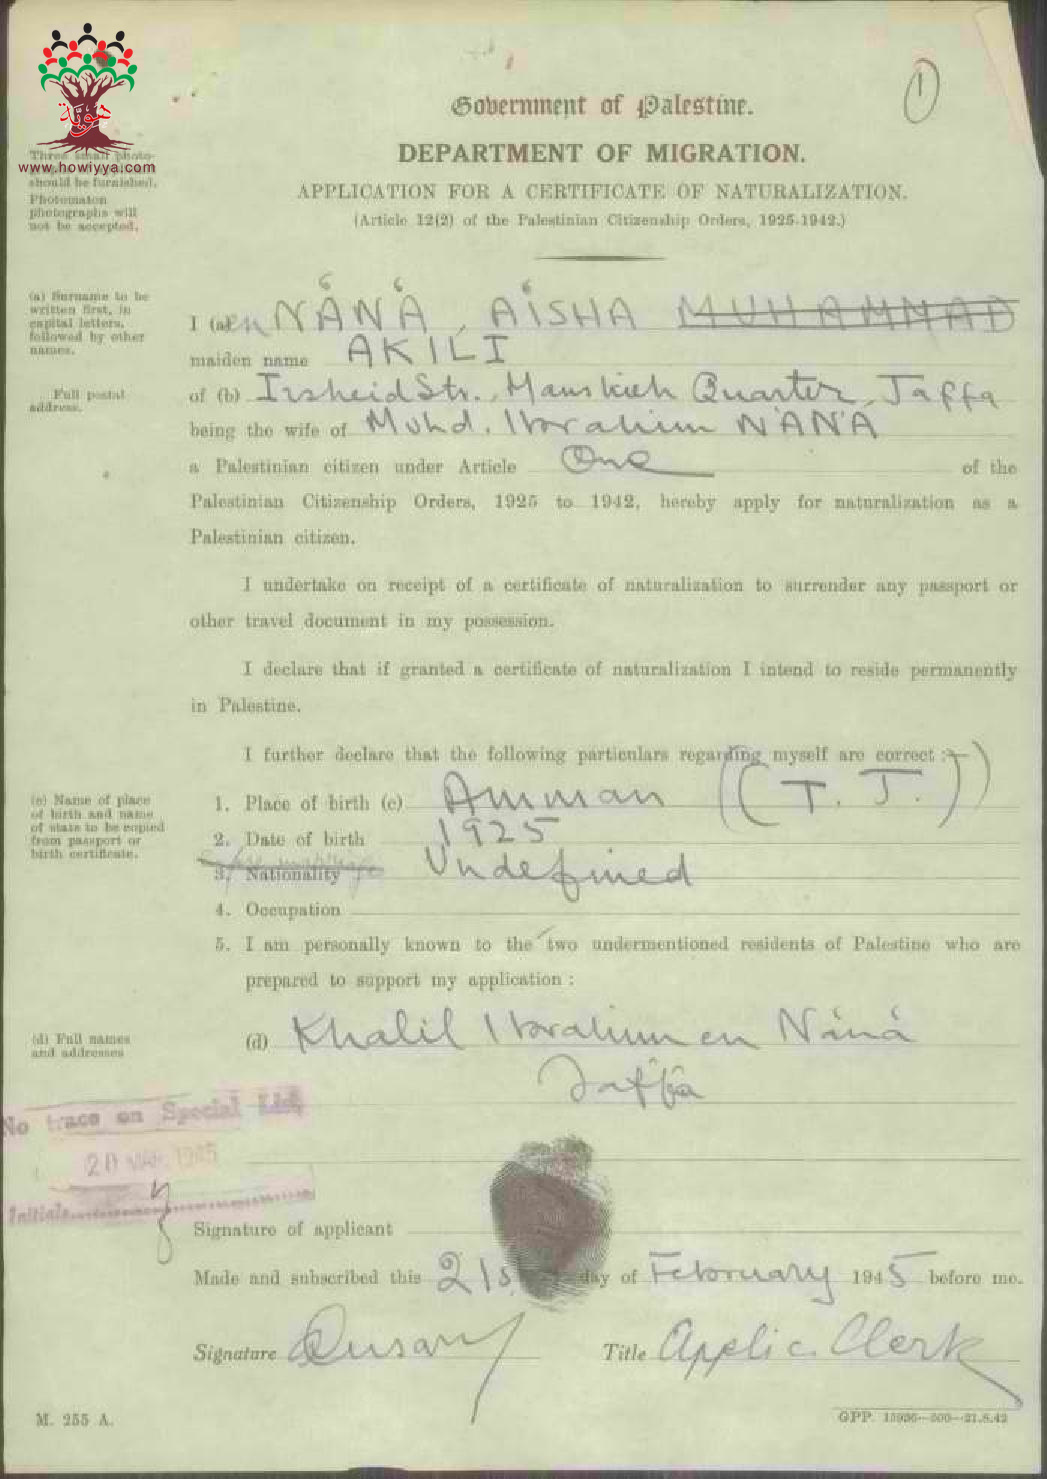 هوية
www.howiyya.com
①
Government of Palestine.
DEPARTMENT OF MIGRATION.
APPLICATION FOR A CERTIFICATE OF NATURALIZATION.
(Article 12(2) of the Palestinian Citizenship Orders, 1925-1942.)
Three small photo-
should be furnished.
Photomaton
photographs will
not be accepted.
(a) Surname to be
written first, in
capital letters,
followed by other
names.
I (a) en NÁNÁ, AISHA MUHAMMAD
maiden name AKILI
Full postal
address.
of (b) Irsheid Str., Manshieh Quarter, Jaffa
being the wife of Muhd. Ibrahim NÁNÁ
a Palestinian citizen under Article One of the
Palestinian Citizenship Orders, 1925 to 1942, hereby apply for naturalization as a
Palestinian citizen.
I undertake on receipt of a certificate of naturalization to surrender any passport or
other travel document in my possession.
I declare that if granted a certificate of naturalization I intend to reside permanently
in Palestine.
I further declare that the following particulars regarding myself are correct :—
(c) Name of place
of birth and name
of state to be copied
from passport or
birth certificate.
1. Place of birth (c) Amman (T. J.)
2. Date of birth 1925
3. Nationality Undefined
4. Occupation
5. I am personally known to the two undermentioned residents of Palestine who are
prepared to support my application :
(d) Full names
and addresses
(d) Khalil Ibrahim en Náná
Jaffa
No trace on Special List
20 MAR 1945
Initials
Signature of applicant
Made and subscribed this 21st day of February 1945 before me.
Signature
Title Applic. Clerk
M. 255 A.
GPP. 15936—500—21.8.42